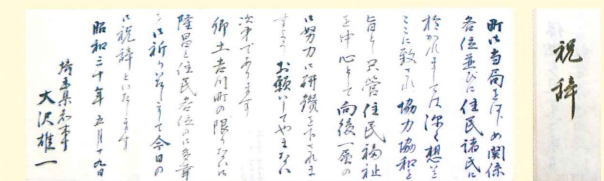 祝辞
町は当局をはじめ関係
各位並びに住民諸民に
於かれましては深く想を
ここに致され協力協和を
旨とし只管住民福祉
を中心として向後一層の
に努力に研鑽を下されま
すよう お願いしてやまない
次第であります
御土吉川町の限りない
隆昌と住民各位の御多幸
を祈り
今日の
祝辞といたします
昭和三十年五月十九日
埼玉県知事
大沢雄一